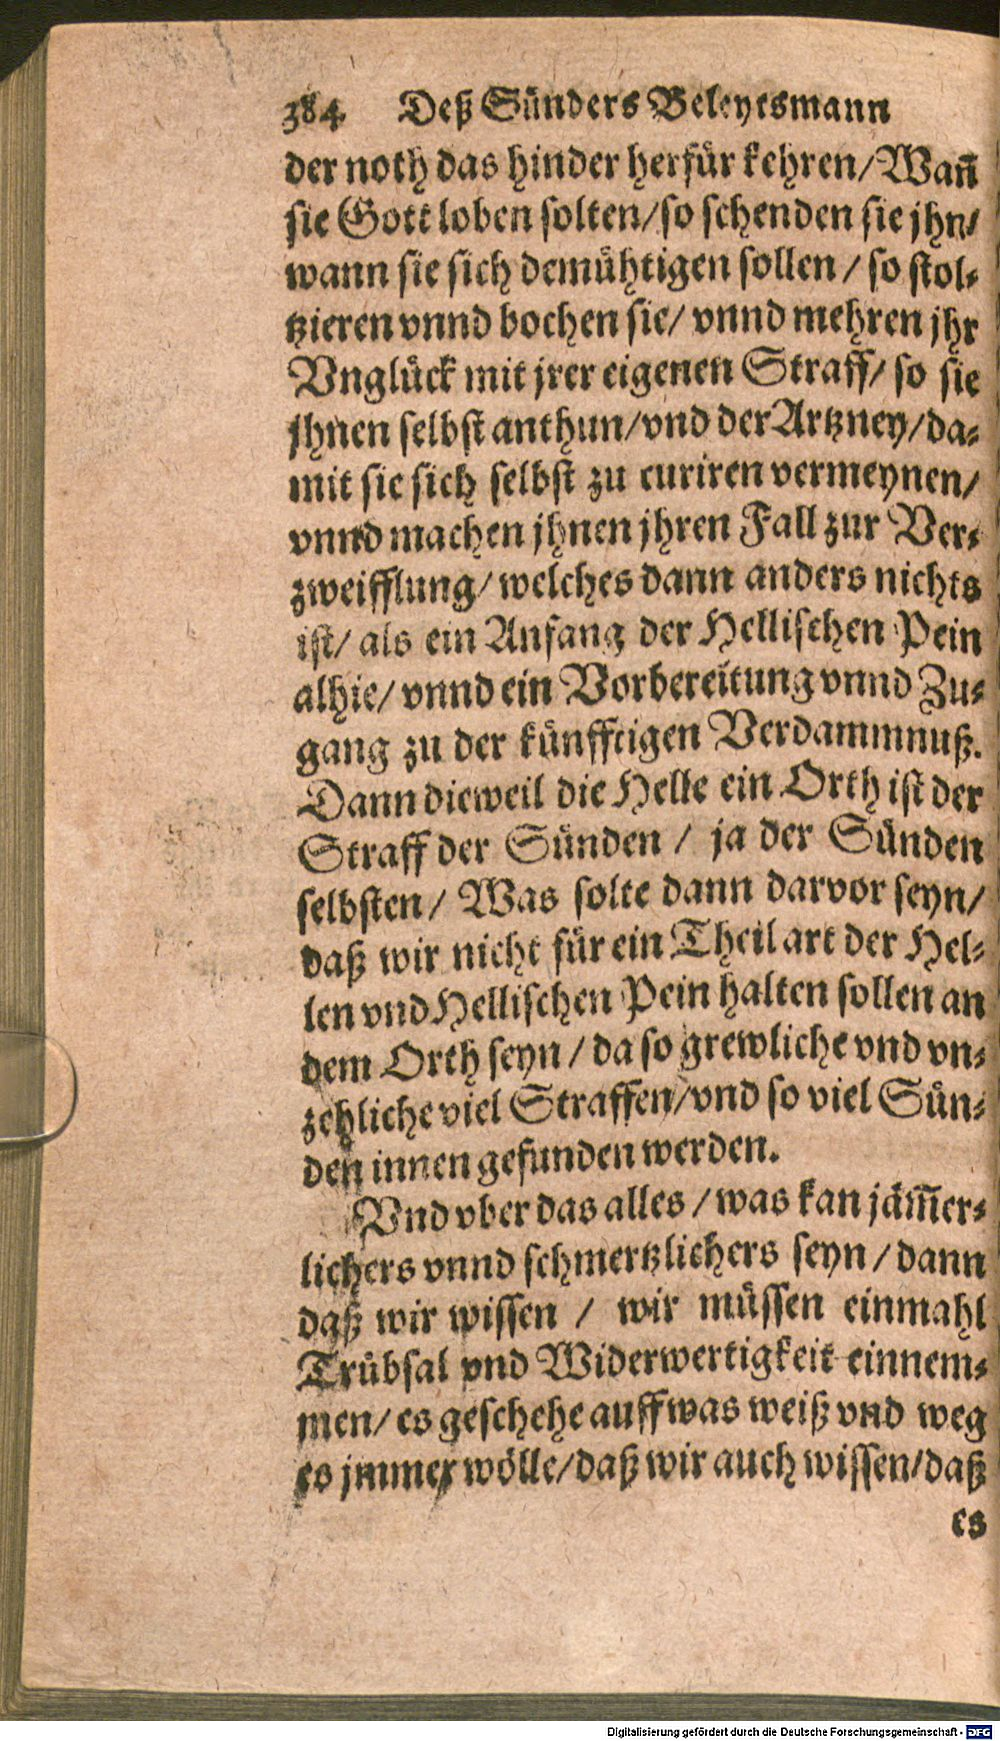 384 Deß Sünders Beleytsmann
der noth das hinder herfür kehren/Wañ
sie Gott loben solten/so schenden sie jhn/
wann sie sich demühtigen sollen / so stol-
tzieren vnnd bochen sie/ vnnd mehren jhr
Vnglück mit jrer eigenen Straff/ so sie
jhnen selbst anthun/vnd der Artzney/da-
mit sie sich selbst zu curiren vermeynen/
vnnd machen jhnen jhren Fall zur Ver-
zweifflung/ welches dann anders nichts
ist/ als ein Anfang der Hellischen Pein
alhie/ vnnd ein Vorbereitung vnnd Zu-
gang zu der künfftigen Verdammnuß.
Dann dieweil die Helle ein Orth ist der
Straff der Sünden / ja der Sünden
selbsten/ Was solte dann darvor seyn/
daß wir nicht für ein Theil art der Hel-
len vnd Hellischen Pein halten sollen an
dem Orth seyn / da so grewliche vnd vn-
zehliche viel Straffen/vnd so viel Sün-
den innen gefunden werden.
Vnd vber das alles / was kan jäm̃er-
lichers vnnd schmertzlichers seyn / dann
daß wir wissen / wir müssen einmahl
Trübsal vnd Widerwertigkeit einnem-
men/ es geschehe auff was weiß vnd weg
es jmmer wölle/daß wir auch wissen/daß
es
Digitalisierung gefördert durch die Deutsche Forschungsgemeinschaft - DFG